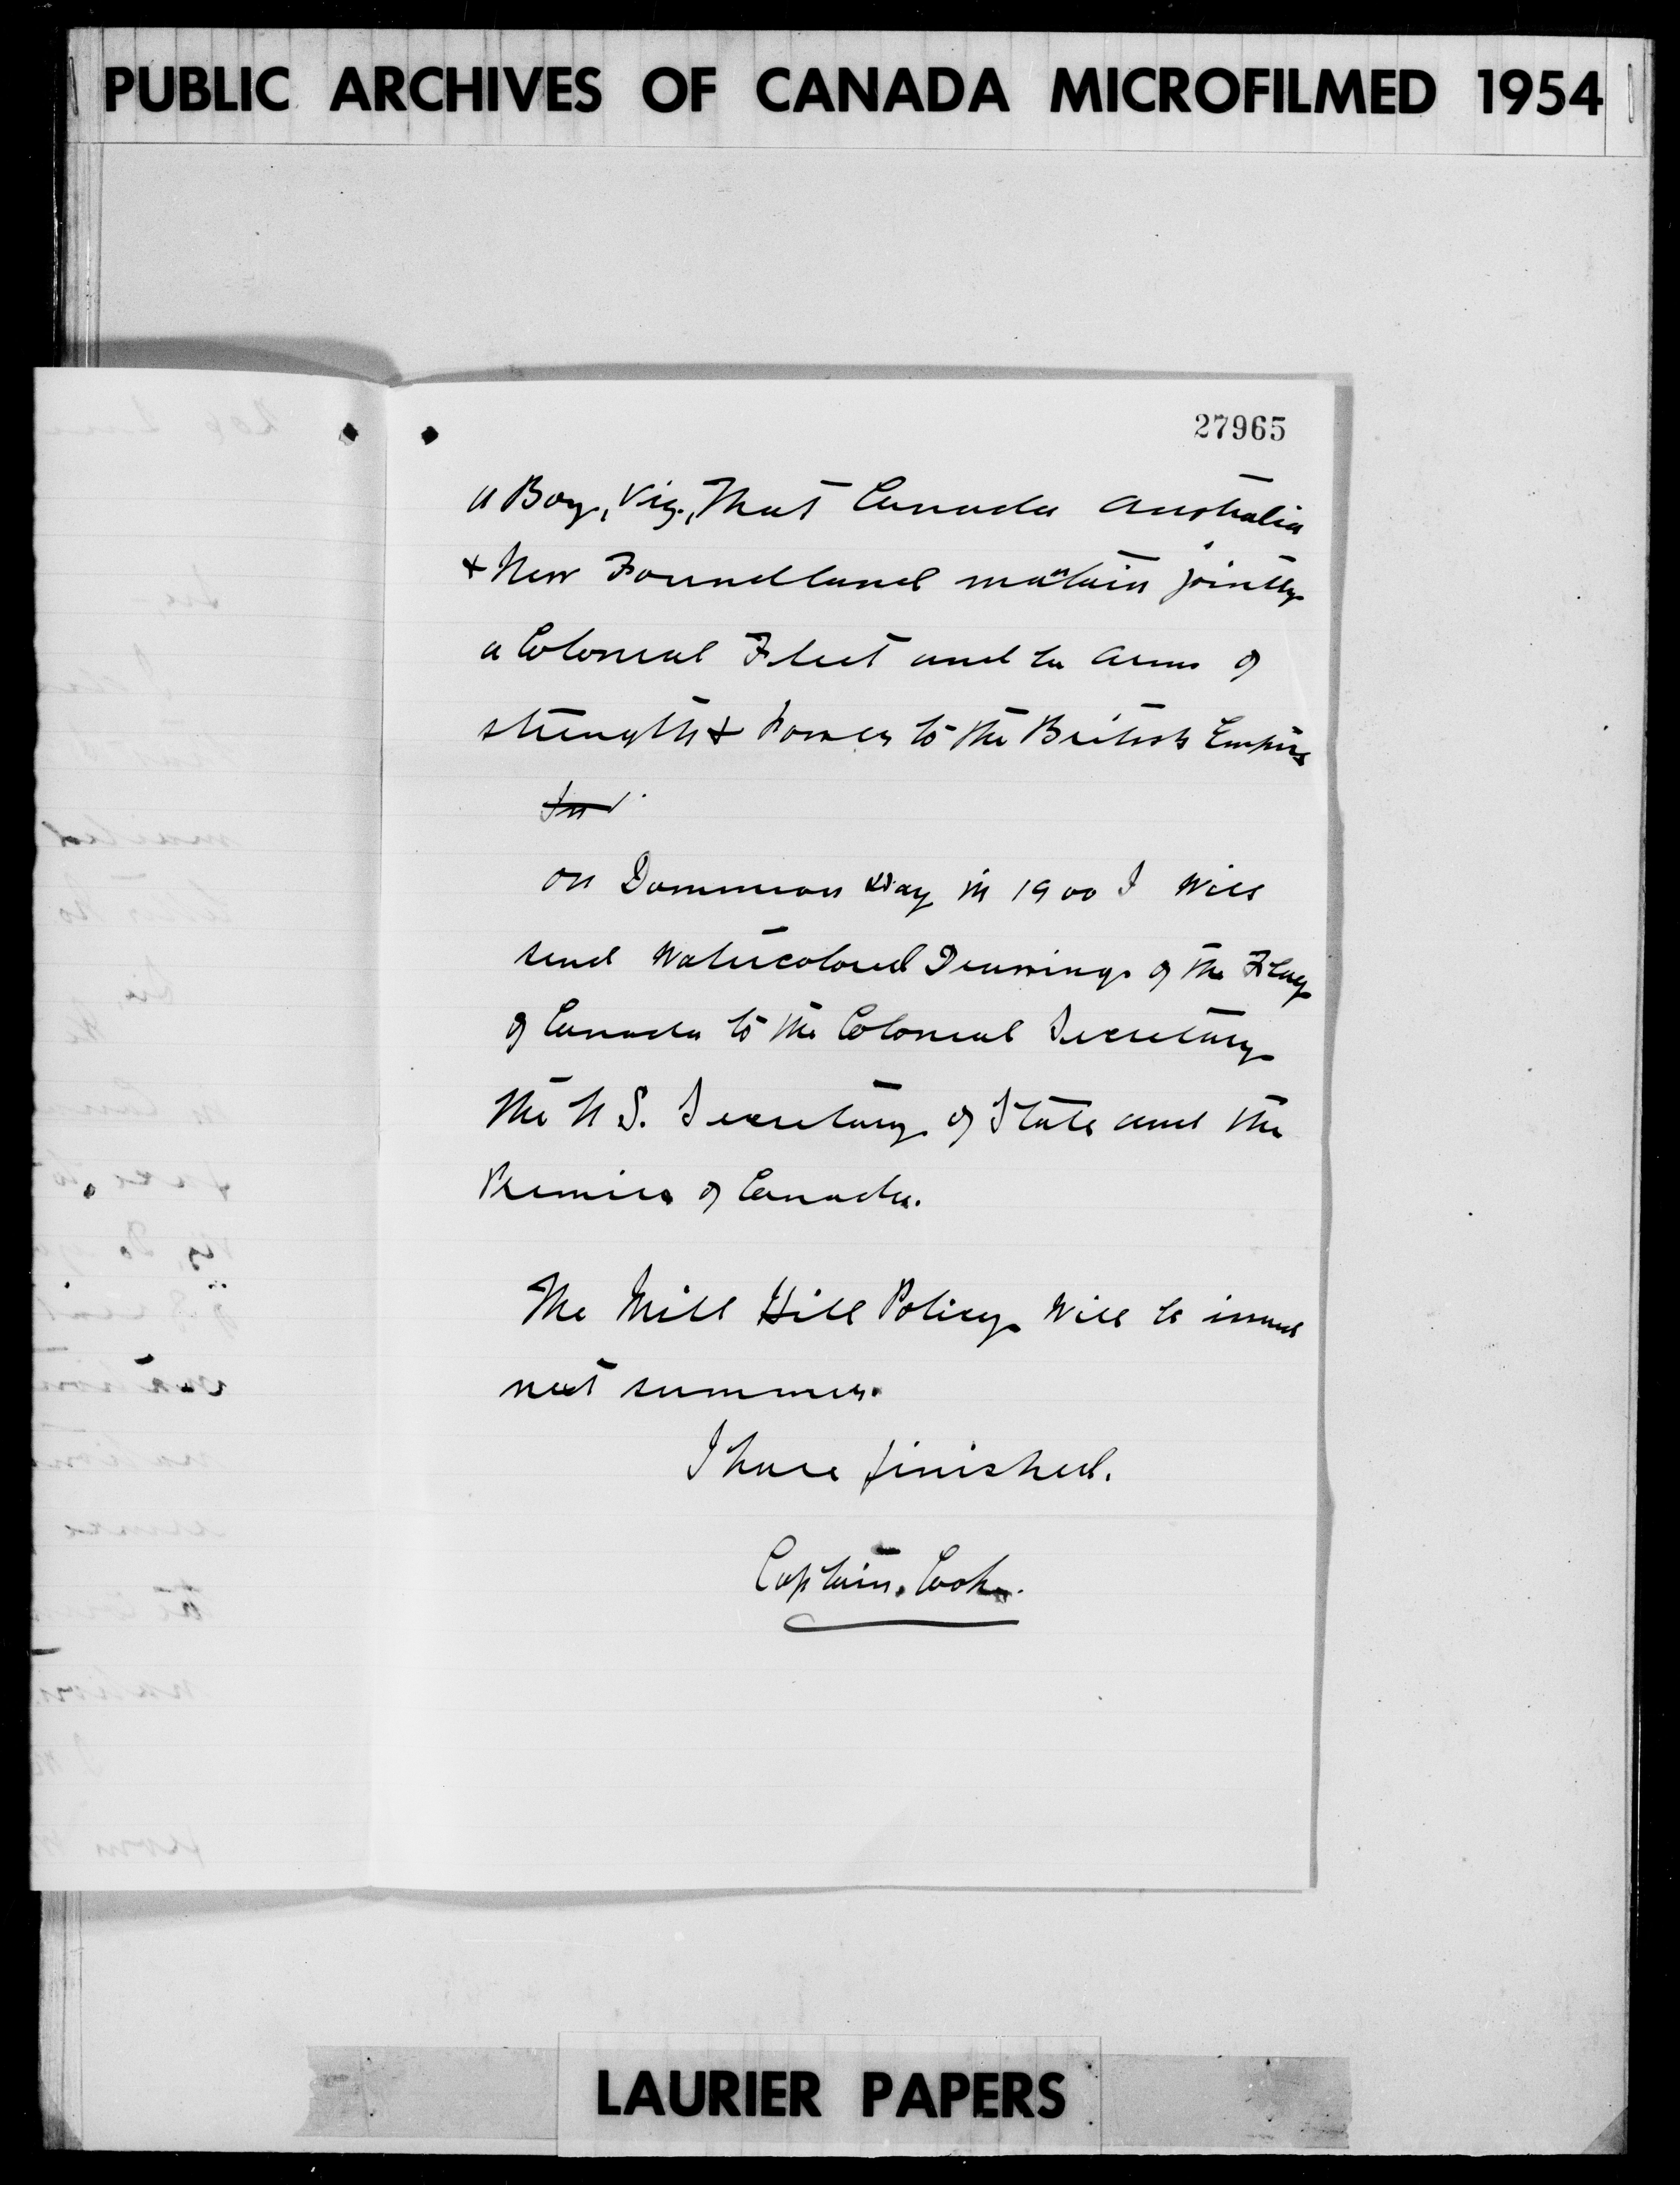 PUBLIC ARCHIVES OF CANADA MICROFILMED 1954
27965
a Boy, Viz., That Canada Australia
& New Foundland maintain jointly
a Colonial Fleet and be arms of
strength & Power to the British Empire
In
on Dominion Day in 1900 I will
send Watercolored Drawings of the Flag
of Canada to the Colonial Secretary
the U S. Secretary of State and the
Premier of Canada.
The Mill Hill Policy will be issued
next summer.
I have finished.
Captain. Cook.
LAURIER PAPERS